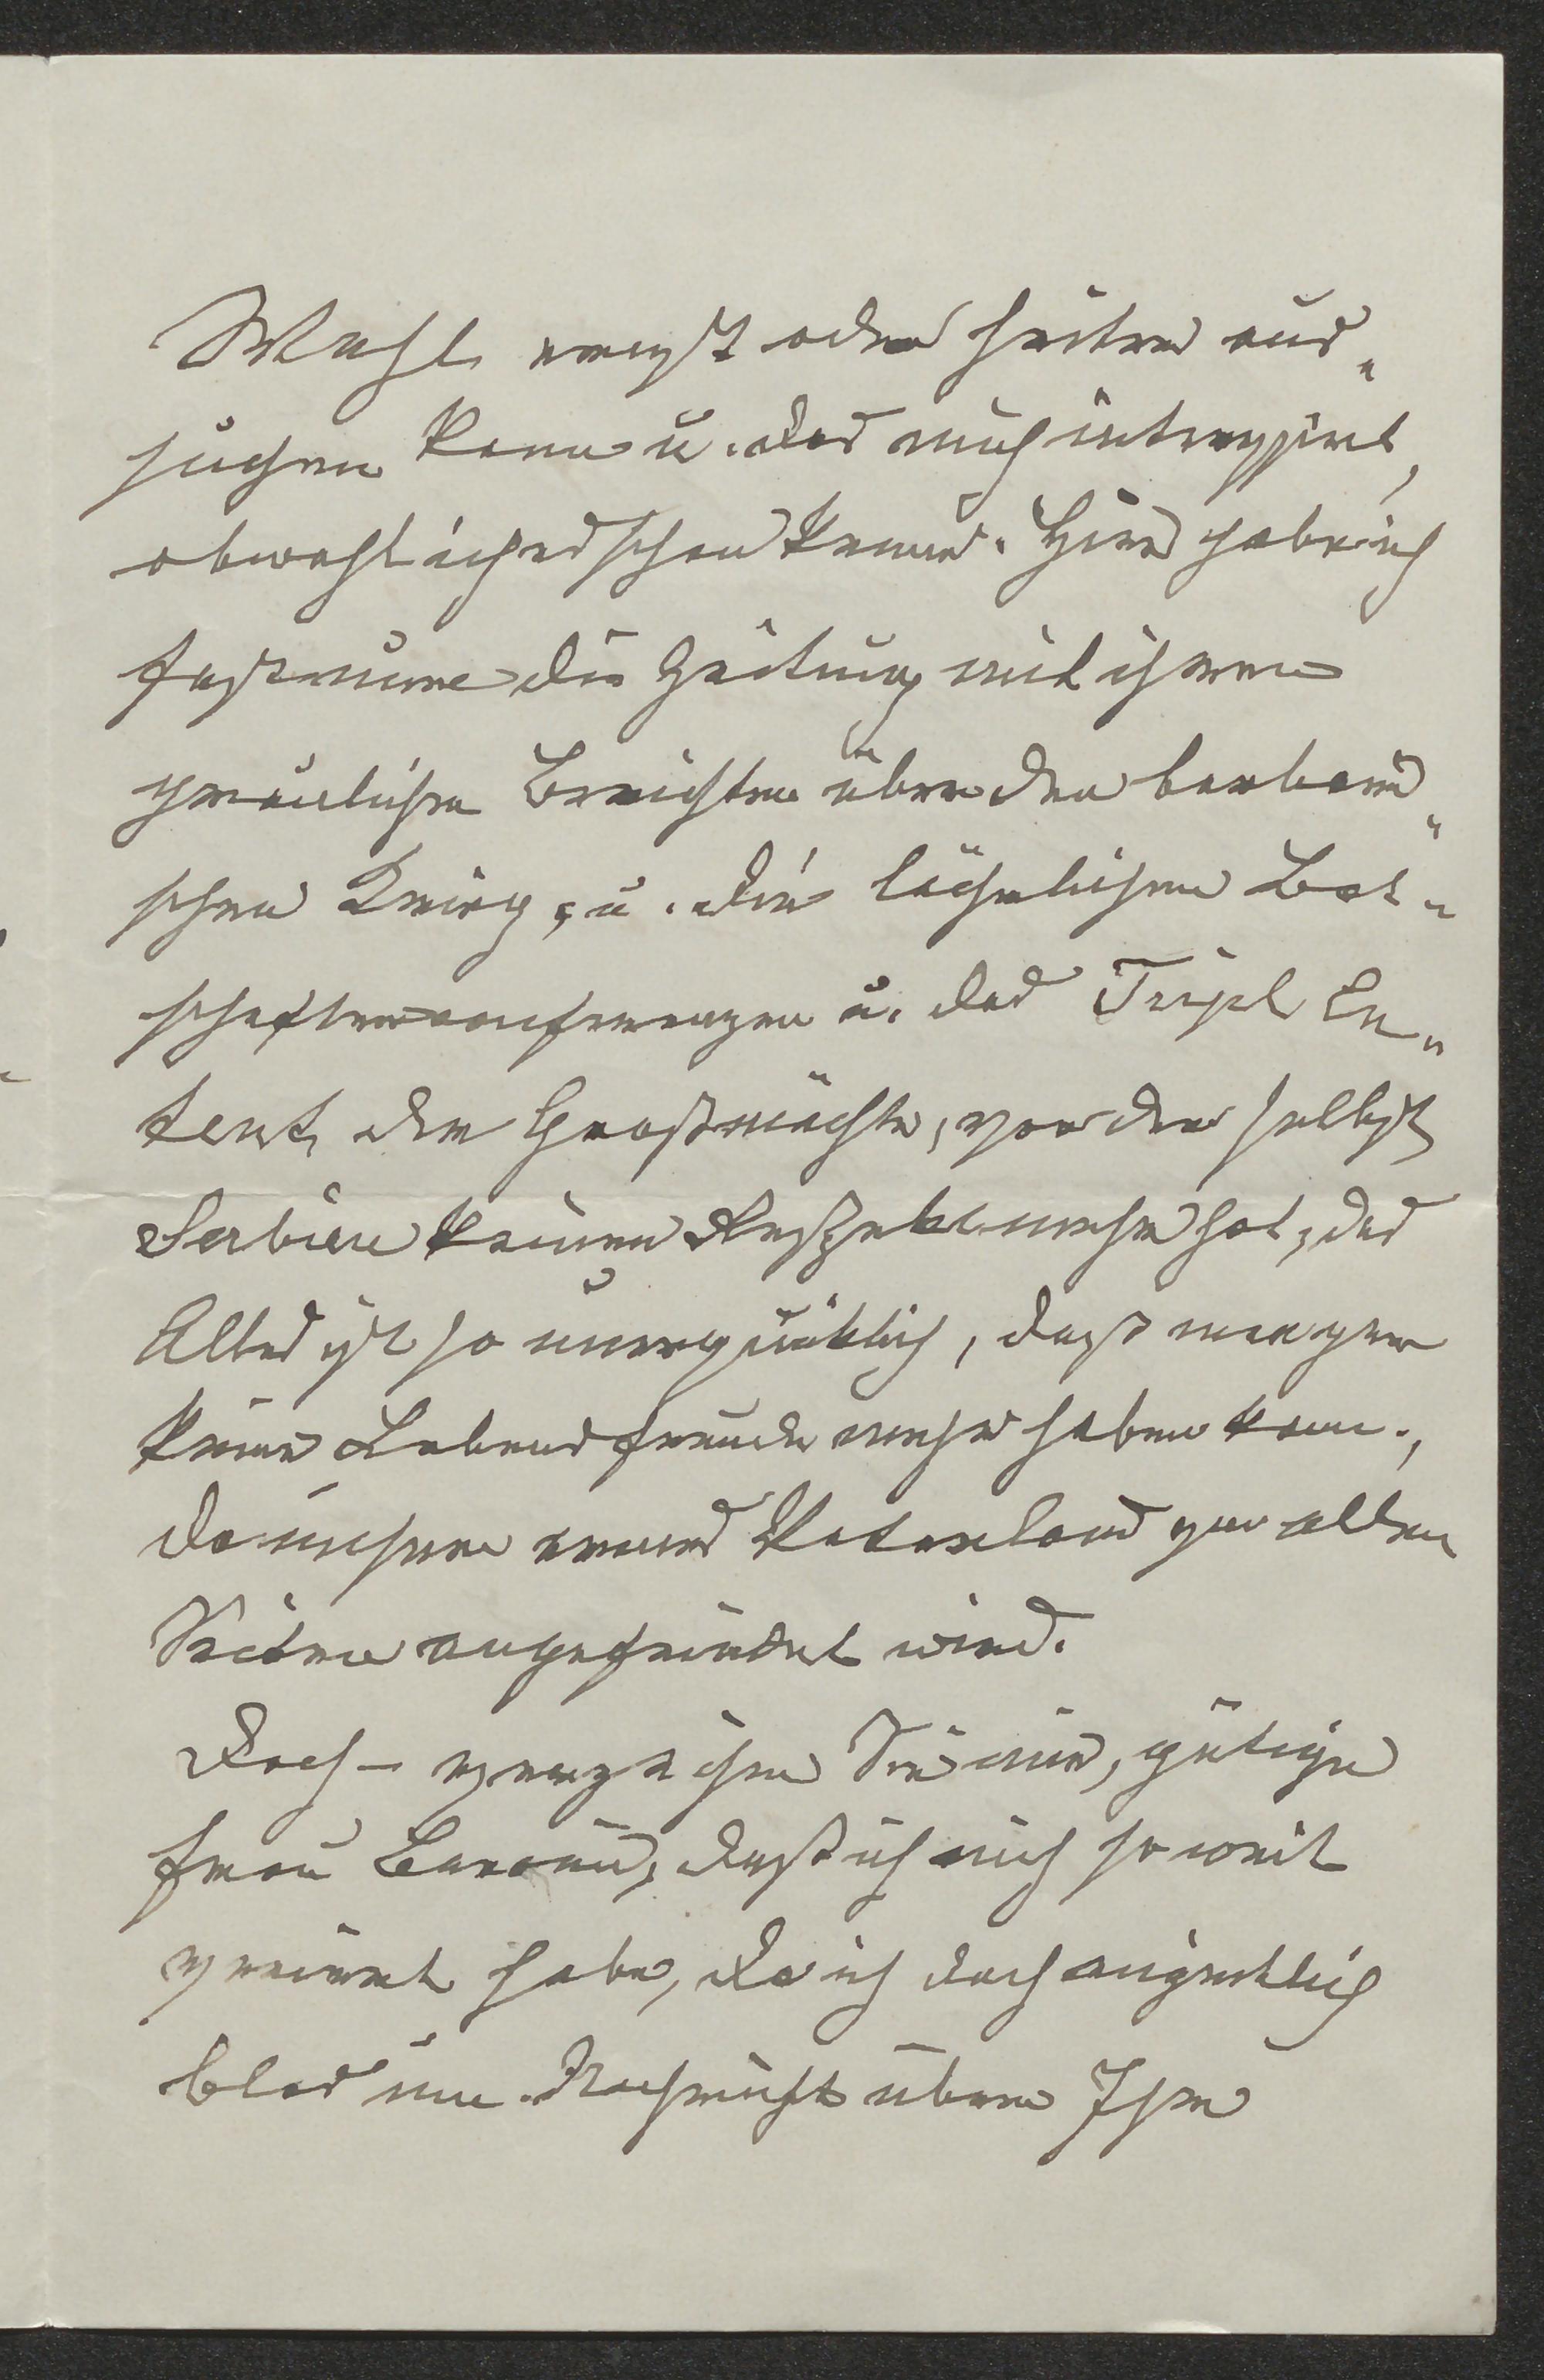 Wahl ernst oder heiter aus„
suchen kann u. das mich interessirt,
obwohl ich es schon kenne. Hier habe ich
fast nur die Zeitung mit ihren
greulichen Berichten über den barbari„
schen Krieg, u. die lächerlichen Bot„
schafterconferenzen u. das Tripl En„
tent, der Großmächte, vor der selbst
Serbien keinen Respekt mehr hat, das
Alles ist so unerquicklich, dass man gar
keine Lebensfreude mehr haben kann.,
da unser armes Vaterland von allen
Seiten angefeindet wird.
Doch – verzeihen Sie mir, gütige
Frau Baronin, dass ich mich so weit
verirrt habe, da ich doch eigentlich
blos um Nachricht über Ihre